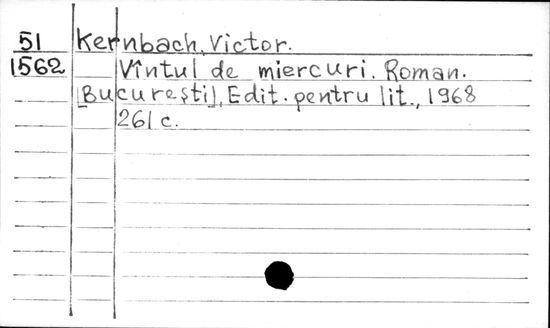 51 Kernbach, Victor.
1562 Vîntul de miercuri. Roman.
[București], Edit. pentru lit., 1968
261 c.